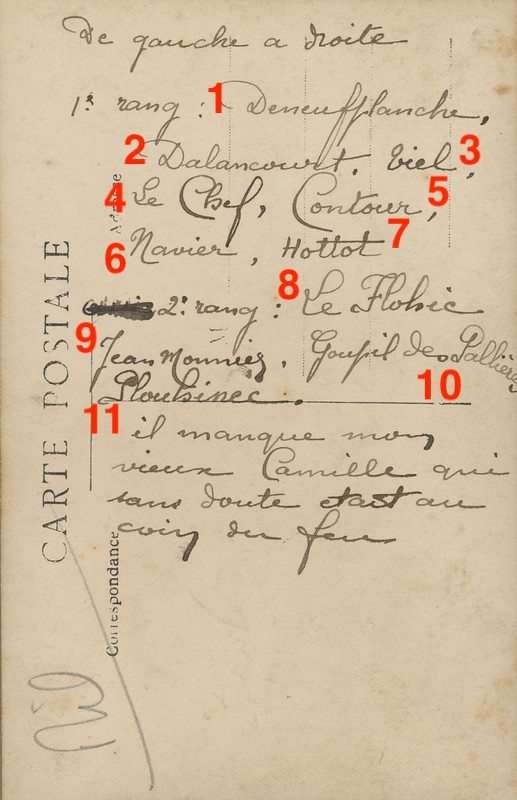 De gauche a droite
1er rang : 1 Deneufflanche,
2 Dalancourt, Viel, 3
4 Le Chef, Contour, 5
6 Navier, Hottot 7
2e rang : 8 Le Flohic
9 Jean Monnier, Goupil des Pallières 10
11 Plouhinec.
il manque mon
vieux Camille qui
sans doute etait au
coin du feu
CARTE POSTALE
Adresse
Correspondance